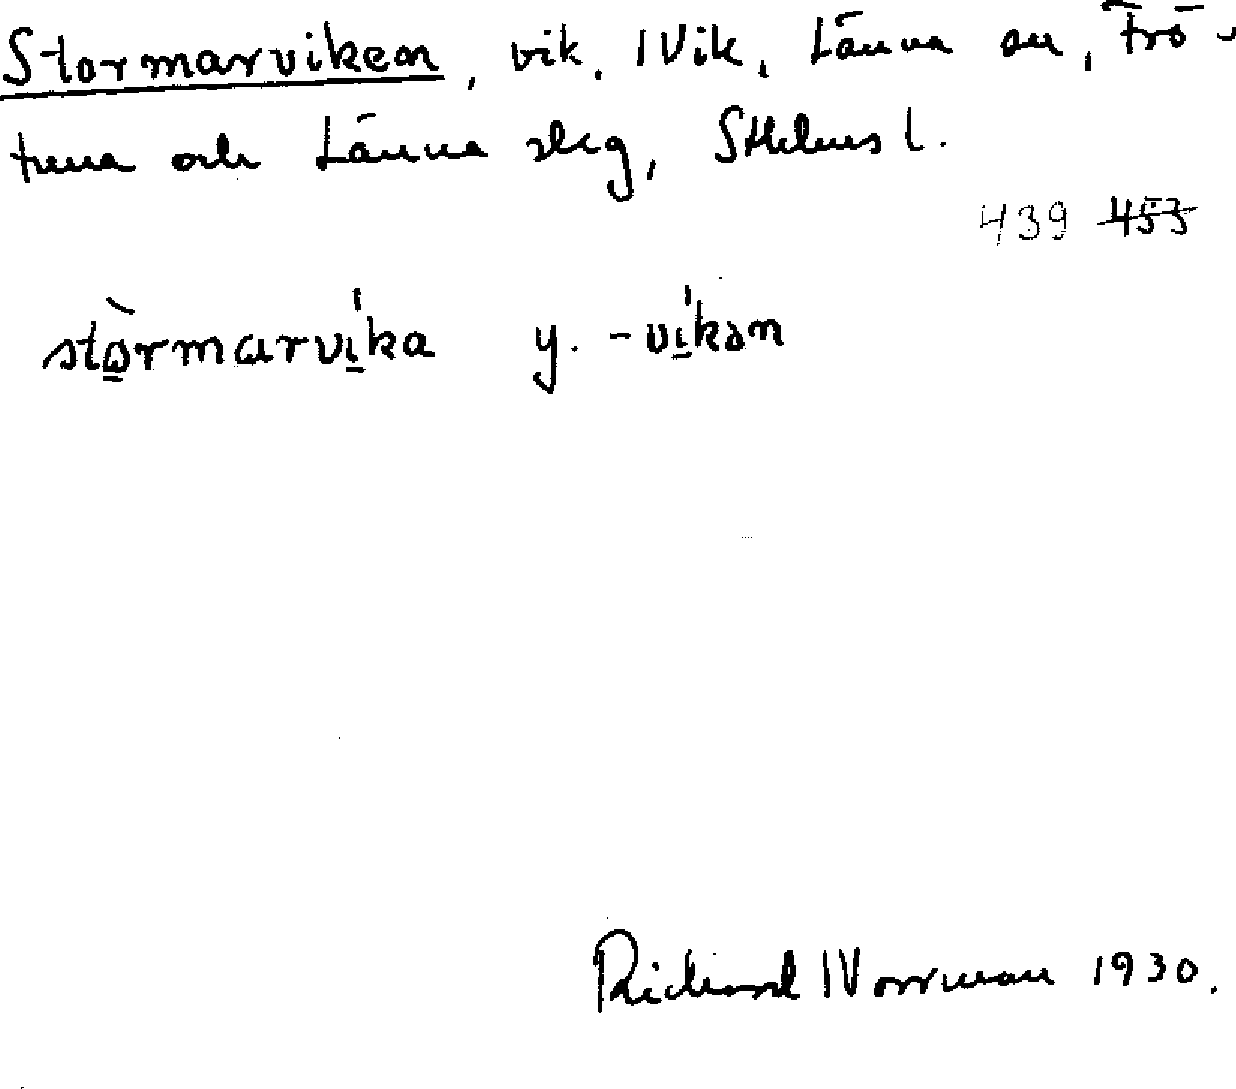 Stormarviken, vik, Vik, Länna sn, Frö-
tuna och Länna skg, Sthlms l.
439 453
stòrmarvi̍ka y. -vi̍kən
Richard Norrman 1930.